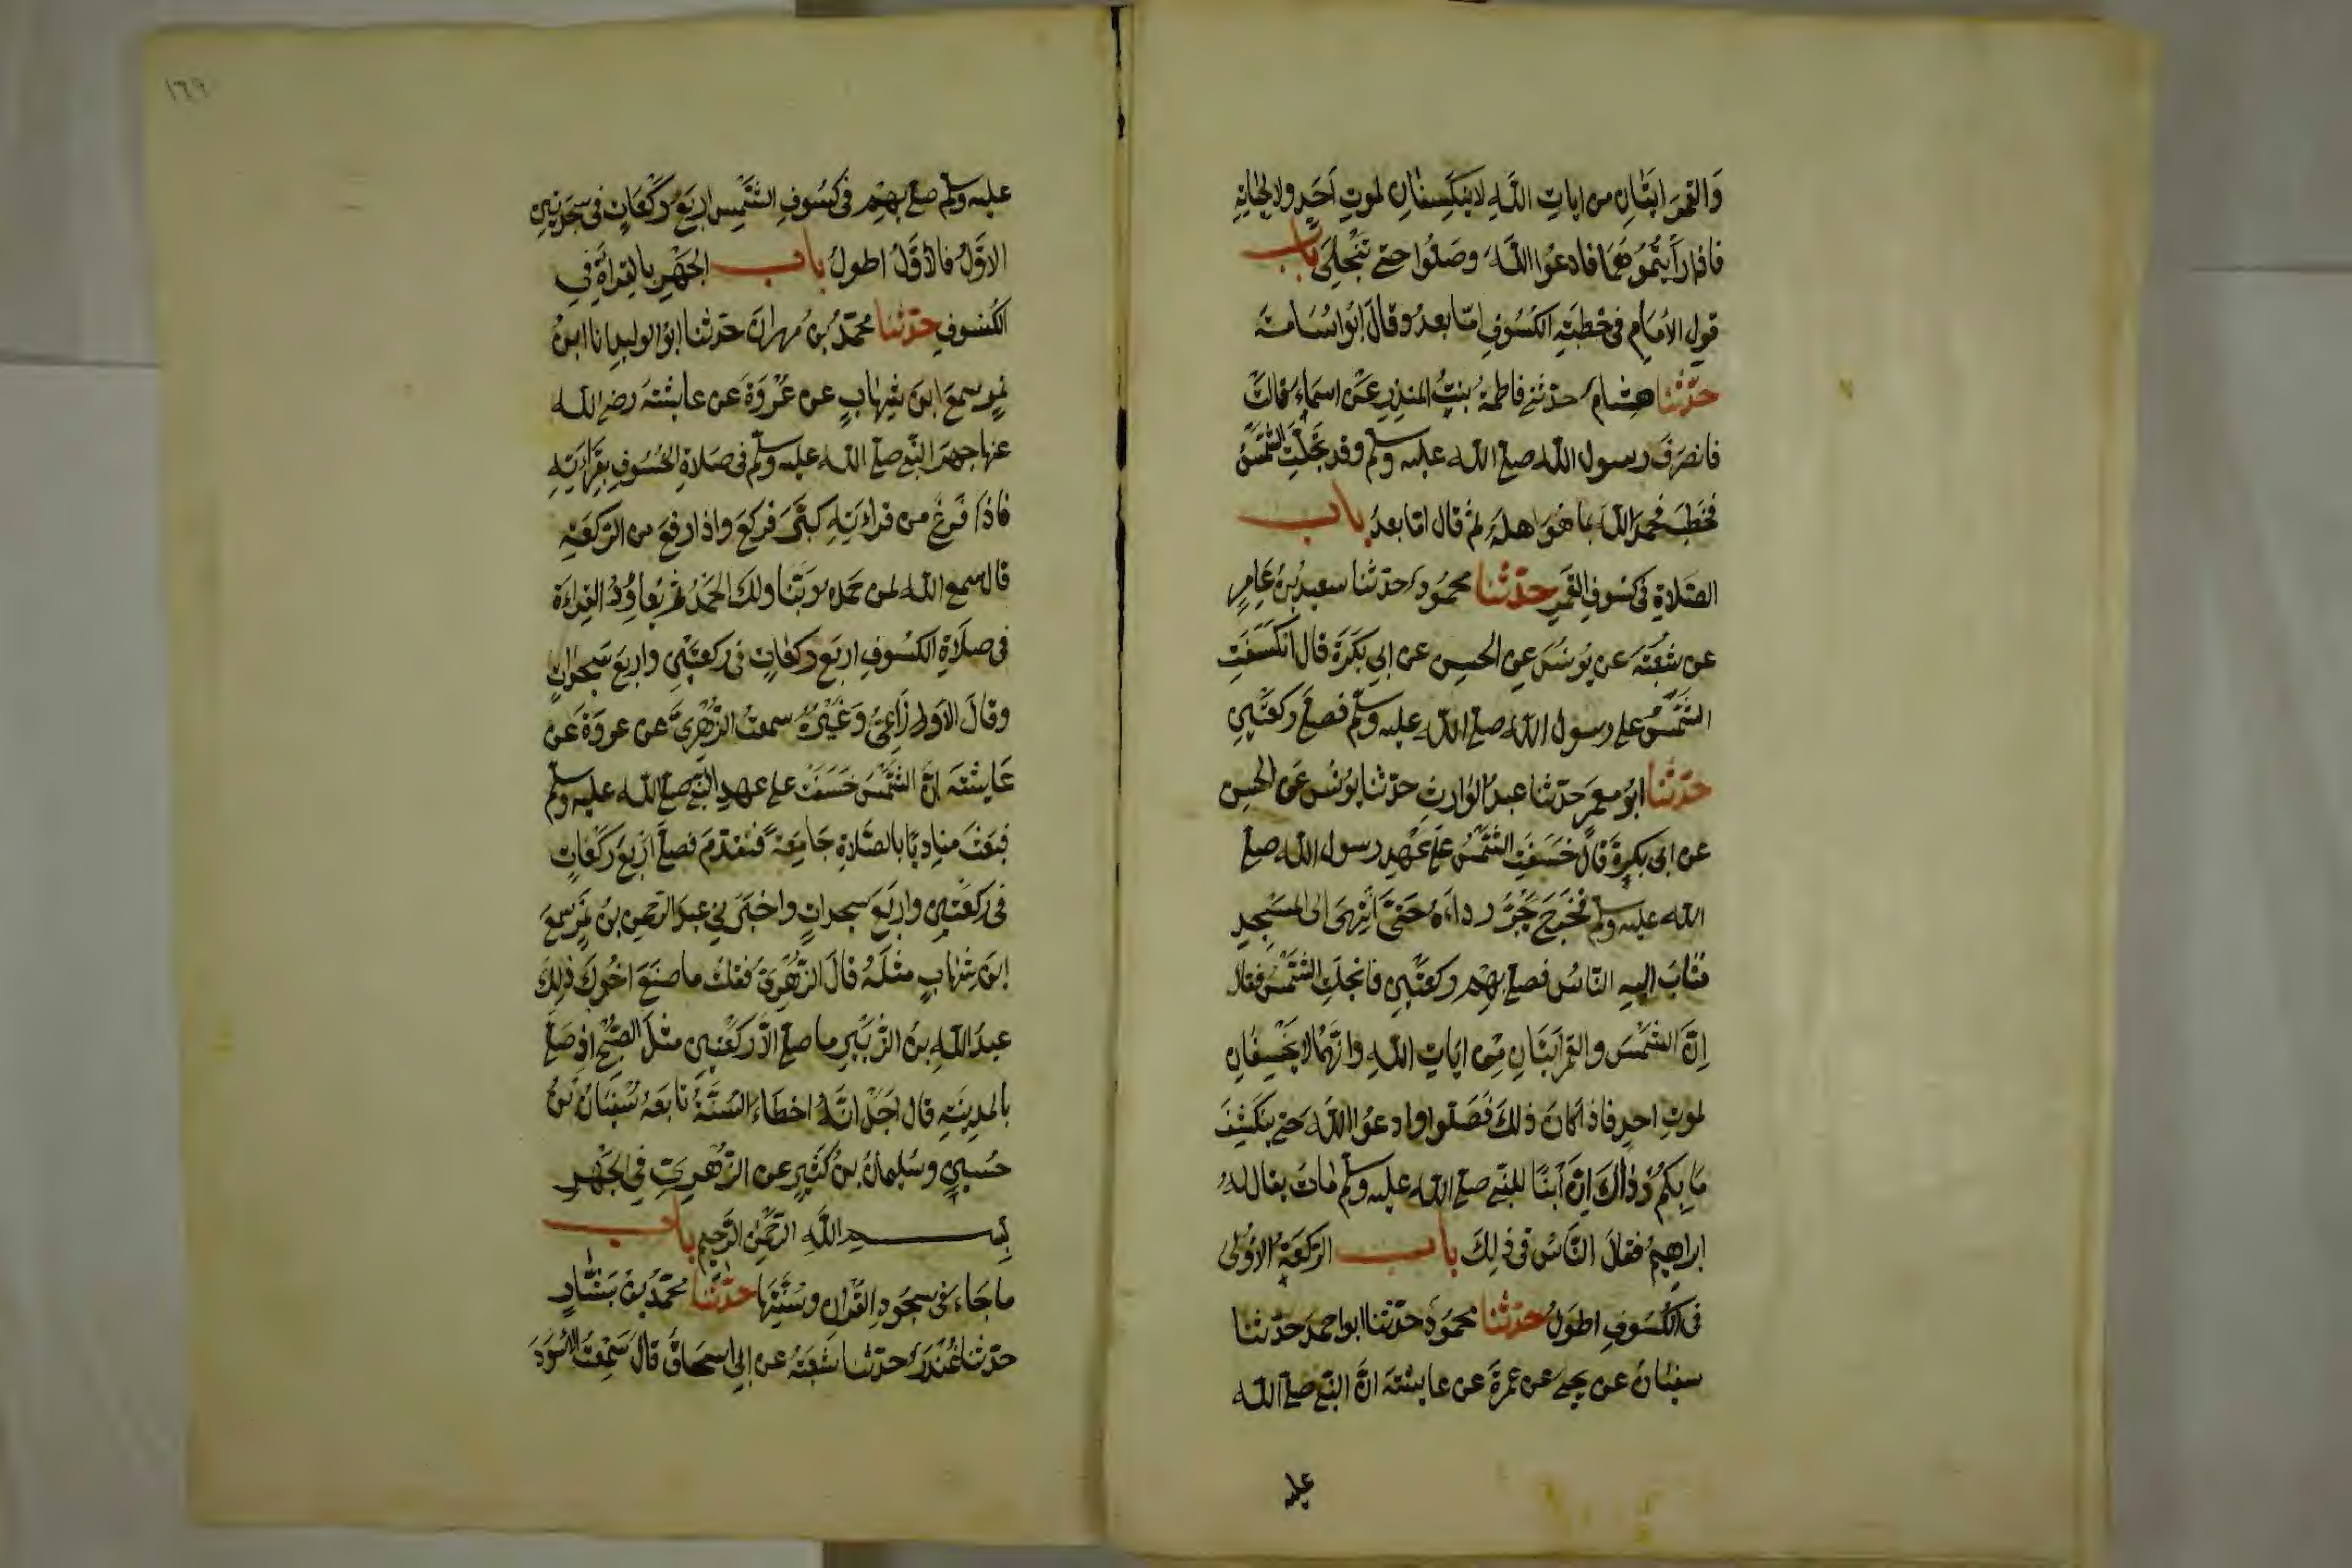 وَالقمرَ ايَتَانِ من اياتِ اللّهِ لا ينكَسِفانِ لموتِ اَحَدٍ ولا لحياتِهِ
فاذا رأيتُمُوهُمَا فادعُوا اللّهَ وصَلُّوا حتى تنجلِىَ باب
قول الامَامِ فى خطبَةِ الكسُوفِ امّا بعدُ وقالَ ابُو اُسَامَةَ
حدّثنا هشامٌ حدثتنى فاطمةُ بنتُ المنذِرِ عَنْ اسماءَ قالتْ
فانصَرَفَ رسول اللّه صلى اللّه عليه وسلم وقد تجلّتِ الشَّمْسُ
فخطبَ فحمدَ اللّهَ بما هُوَ اهلهُ ثم قال امّا بعدُ باب
الصّلاةِ فى كسُوفِ القَمرِ حدّثنا محمُودٌ حدّثنا سعيدُ بنُ عَامِرٍ
عن شُعبَةَ عن يُونسَ عن الحسن عن ابى بكَرَةَ قال انكسَفَتِ
الشّمْسُ على رسول اللّه صلى اللّه عليه وسلم فصلى ركعتَينِ
حدّثنا ابُو معمرٍ حدّثنا عبدُ الوارثِ حدّثنا يونُس عَنِ الحسن
عن ابى بكرةَ قالَ خسَفَتِ الشّمْسُ على عَهْدِ رسول اللّه صلى
اللّه عليه وسلم فخرَجَ يجُرُّ رداءَهُ حتّى انتهَى الى المسْجِدِ
فثابَ اليهِ النّاسُ فصلى بهِمْ ركعتَينِ فانجلتِ الشّمْسُ فقال
اِنَّ الشّمْسَ والقمرَ ايتَانِ مِن ايَاتِ اللّهِ وانّهُمَا لا يخْسِفَانِ
لموتِ احدٍ فاذا كانَ ذلكَ فَصَلّوا وادعُوا اللّهَ حتى يَنكشِفَ
مَا بِكُمْ وذاكَ اِنَّ ابْنًا للنبى صلى اللّه عليه وسلم ماتَ يقال لهُ
ابراهيمُ فقالَ النّاسُ فى ذلِكَ باب الركعَةُ الاُولى
فى الكسُوفِ اطوَلُ حدّثنا محمُودٌ حدّثنا ابو احمدَ حدّثنا
سفيَان عن يحيى عن عمرةَ عن عايشةَ انَّ النبى صلى اللّه
عليه
١٦٩
عليه وسلم صلى بهِمْ فى كسُوفِ الشّمْسِ اربَعَ رَكعَاتٍ فى سجدَتَينِ
الاوّلُ فالاَوّلُ اطولُ باب الجَهْرِ بالقراءَةِ فِى
الكُسُوفِ حدّثنا محمّدُ بنُ مهرانَ حدّثنا ابُو الوليدِ انا ابنُ
نمرٍ سمعَ ابنَ شِهابٍ عن عُرْوَةَ عن عايشَةَ رضى اللّه
عنها جهرَ النّبى صلى اللّه عليه وسلم فى صلاةِ الخُسُوفِ بقِراءَتِهِ
فاذا فرغَ من قراءتِهِ كبّرَ فركعَ واذا رفعَ من الرّكعَةِ
قال سمع اللّه لمن حَمدهُ ربّنا ولكَ الحَمْدُ ثم يُعاوِدُ القِراءَةَ
فى صلاةِ الكسُوفِ اربَعَ ركعاتٍ فى ركعتَينِ واربعَ سَجداتٍ
وقالَ الاوزاعىُّ وَغَيْرُهُ سمعتُ الزُّهْرِىَّ عن عروةَ عن
عَايشةَ انَّ الشّمْسَ خسَفتْ على عهدِ النبى صلى اللّه عليه وسلم
فبعَثَ مناديًا بالصّلاةِ جَامِعَةً فتقدّمَ فصلى اَرْبعَ ركعَاتٍ
فى ركعَتينِ واربَعَ سجداتٍ واخبَرَنى عبدُ الرّحمن بنُ نَمِرٍ سمعَ
ابنَ شِهابٍ مثلَهُ قالَ الزّهْرِىُّ فقلتُ ما صَنعَ اخُوكَ ذلِكَ
عبدُ اللّهِ بنُ الزُّبَيرِ ما صلى الّا ركعتينِ مثلَ الصُّبْحِ اذ صَلى
بالمدِينةِ قال اَجَلْ انّهُ اخطاءَ السُّنّةَ تابَعَهُ سُفيَانُ بنُ
حُسينٍ وسُليمانُ بنُ كثيرٍ عن الزُّهرِىِّ فى الجَهْرِ
بسم اللّهِ الرّحمٰنِ الرّحيمِ باب
ما جَاءَ فى سجُودِ القُرانِ وسُنّتِهَا حدّثنا محمّدُ بنُ بَشّارٍ
حدّثنا غُنْدَرٌ حدّثنا شعبَةُ عن ابى اسحاقَ قالَ سَمِعتُ الاسْوَدَ